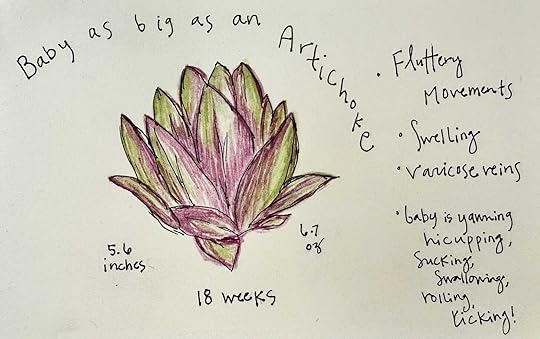 Baby as big as an Artichoke
• Fluttery
Movements
• Swelling
• varicose veins
• baby is yawning
hicupping,
sucking,
swallowing,
rolling,
kicking!
5.6
inches
6.7
oz
18 weeks